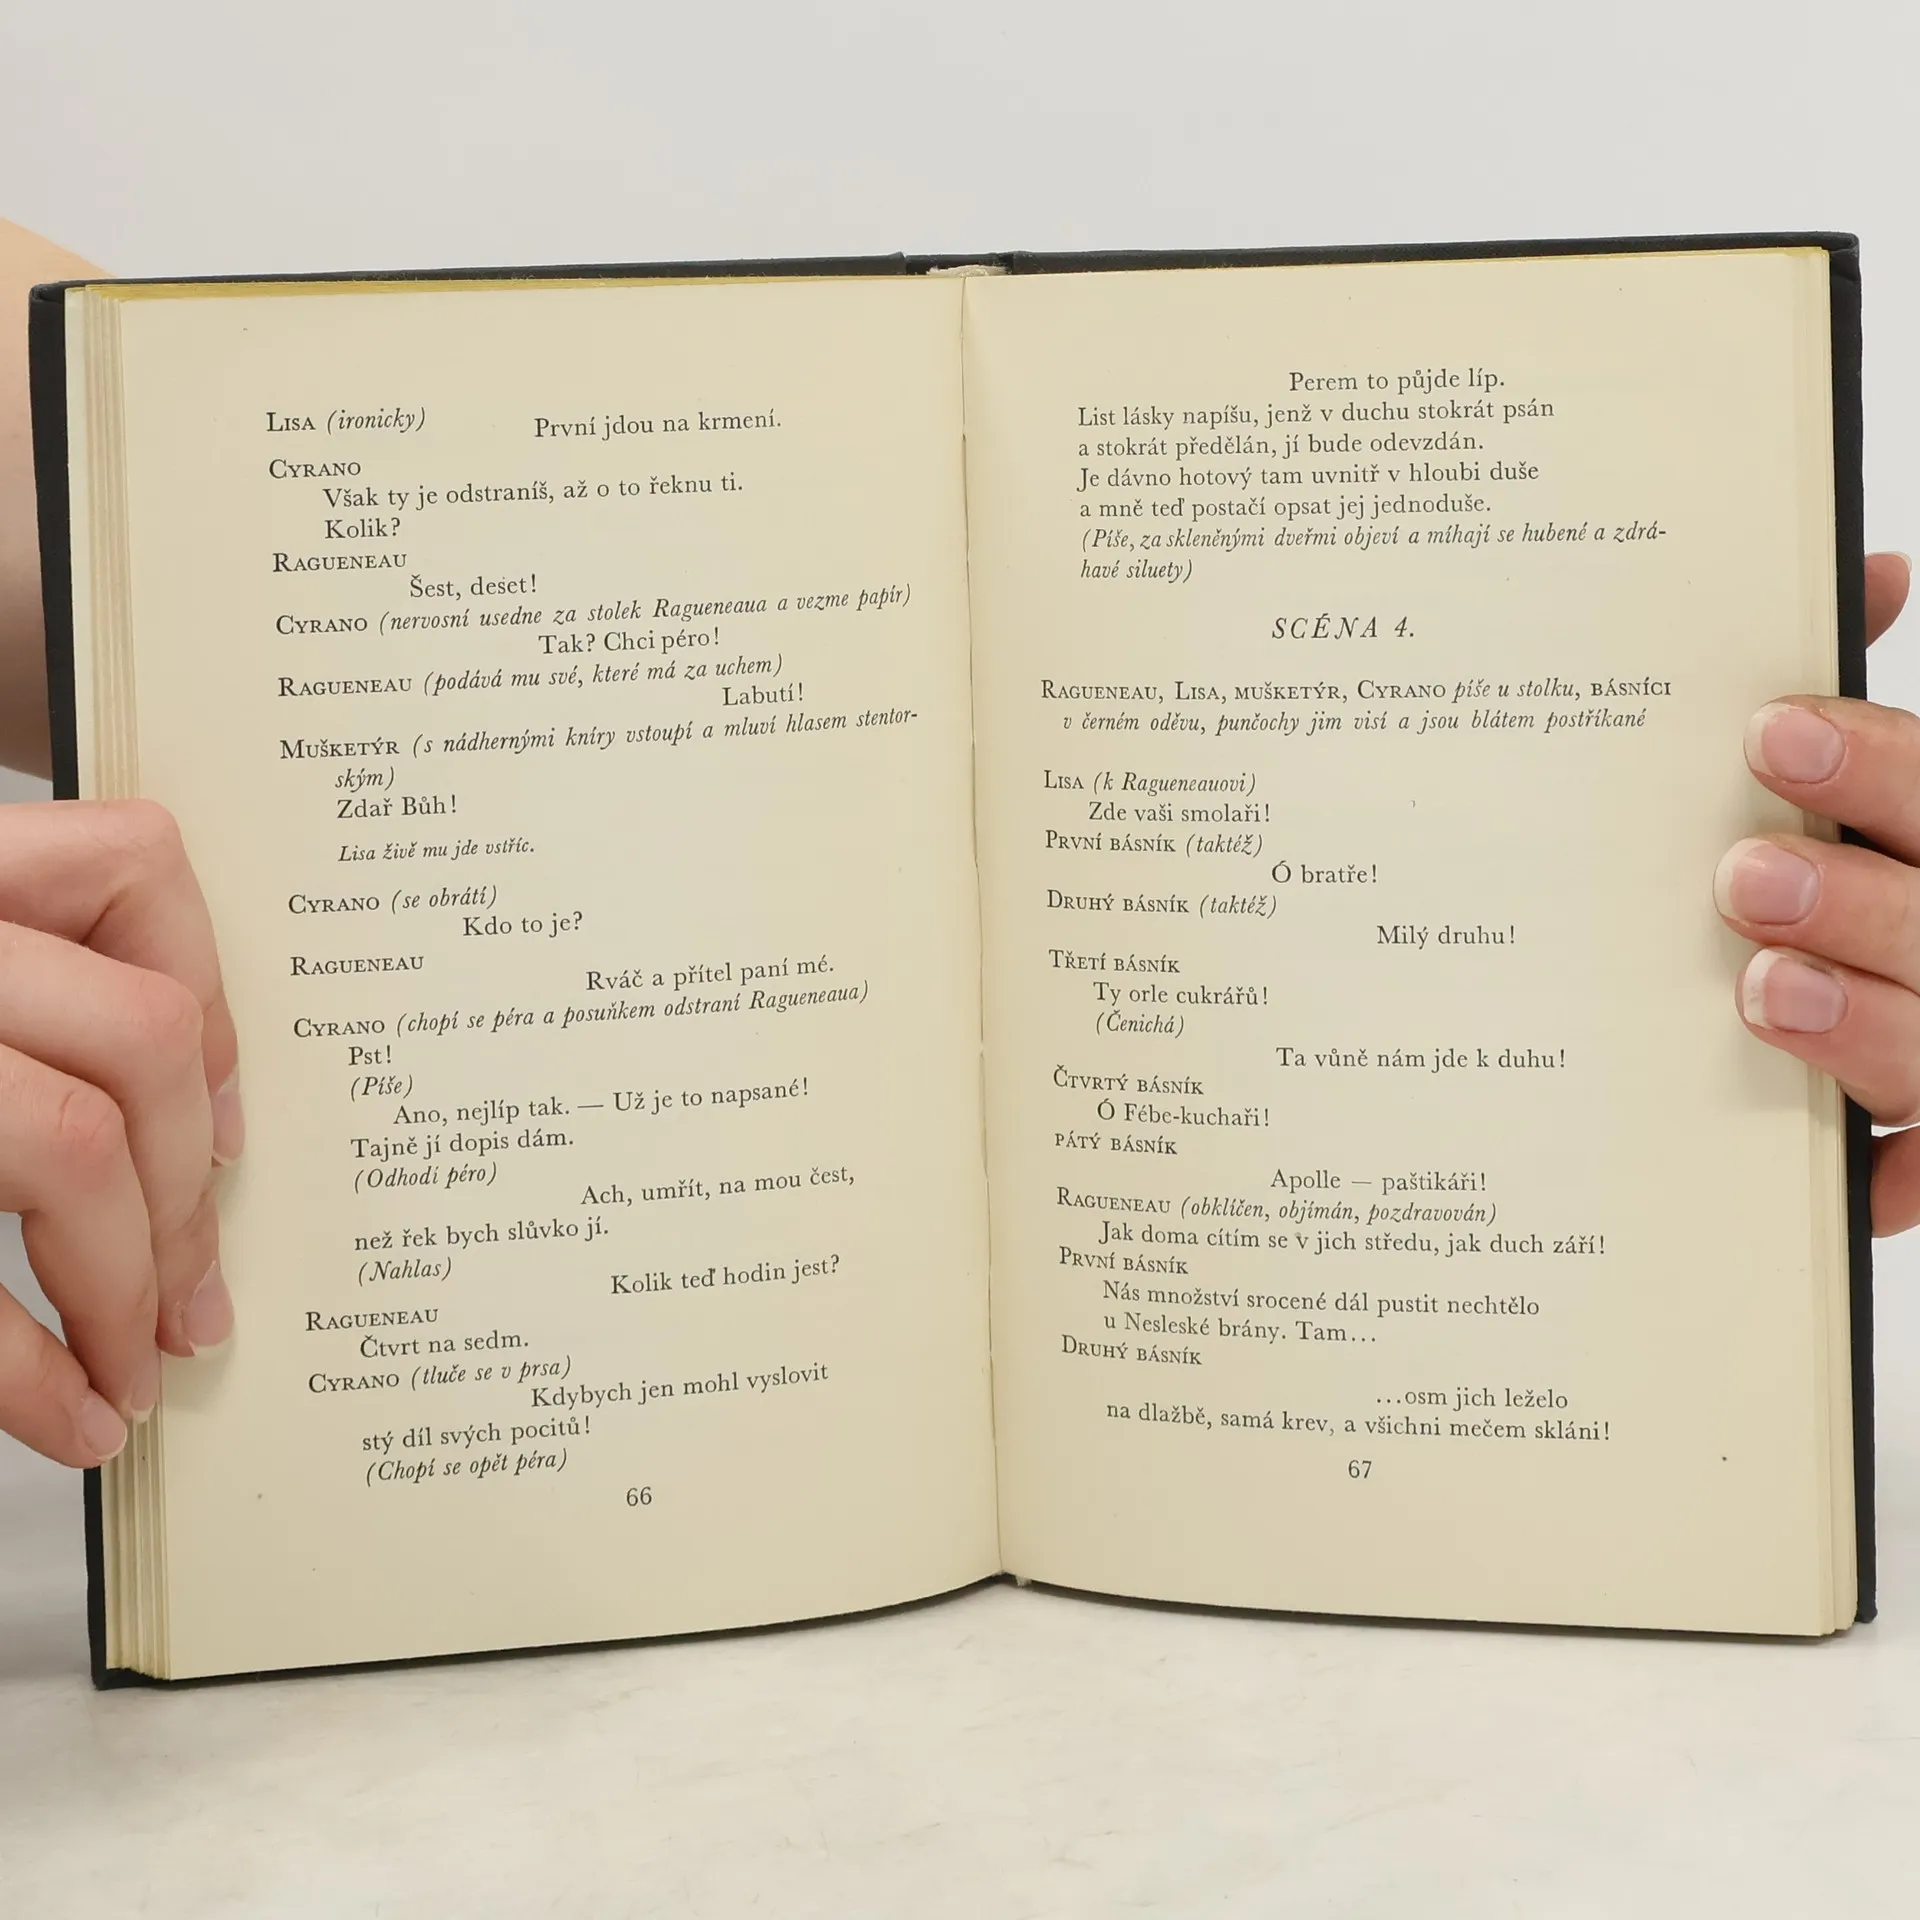 LISA (ironicky)
První jdou na krmení.
CYRANO
Však ty je odstraníš, až o to řeknu ti.
Kolik?
RAGUENEAU
Šest, deset!
CYRANO (nervosní usedne za stolek Ragueneaua a vezme papír)
Tak? Chci péro!
RAGUENEAU (podává mu své, které má za uchem)
Labutí!
MUŠKETÝR (s nádhernými kníry vstoupí a mluví hlasem stentor-
ským)
Zdař Bůh!
Lisa živě mu jde vstříc.
CYRANO (se obrátí)
Kdo to je?
RAGUENEAU
Rváč a přítel paní mé.
CYRANO (chopí se péra a posuňkem odstraní Ragueneaua)
Pst!
(Píše)
Ano, nejlíp tak. — Už je to napsané!
Tajně jí dopis dám.
(Odhodí péro)
Ach, umřít, na mou čest,
než řek bych slůvko jí.
(Nahlas)
Kolik teď hodin jest?
RAGUENEAU
Čtvrt na sedm.
CYRANO (tluče se v prsa)
Kdybych jen mohl vyslovit
stý díl svých pocitů!
(Chopí se opět péra)
66
Perem to půjde líp.
List lásky napíšu, jenž v duchu stokrát psán
a stokrát předělán, jí bude odevzdán.
Je dávno hotový tam uvnitř v hloubi duše
a mně teď postačí opsat jej jednoduše.
(Píše, za skleněnými dveřmi objeví a míhají se hubené a zdrá-
havé siluety)
SCÉNA 4.
RAGUENEAU, LISA, MUŠKETÝR, CYRANO píše u stolku, BÁSNÍCI
v černém oděvu, punčochy jim visí a jsou blátem postříkané
LISA (k Ragueneauovi)
Zde vaši smolaři!
PRVNÍ BÁSNÍK (taktéž)
Ó bratře!
DRUHÝ BÁSNÍK (taktéž)
Milý druhu!
TŘETÍ BÁSNÍK
Ty orle cukrářů!
(Čenichá)
Ta vůně nám jde k duhu!
ČTVRTÝ BÁSNÍK
Ó Fébe-kuchaři!
PÁTÝ BÁSNÍK
Apolle — paštikáři!
RAGUENEAU (obklíčen, objímán, pozdravován)
Jak doma cítím se v jich středu, jak duch září!
PRVNÍ BÁSNÍK
Nás množství srocené dál pustit nechtělo
u Nesleské brány. Tam...
DRUHÝ BÁSNÍK
...osm jich leželo
na dlažbě, samá krev, a všichni mečem skláni!
67